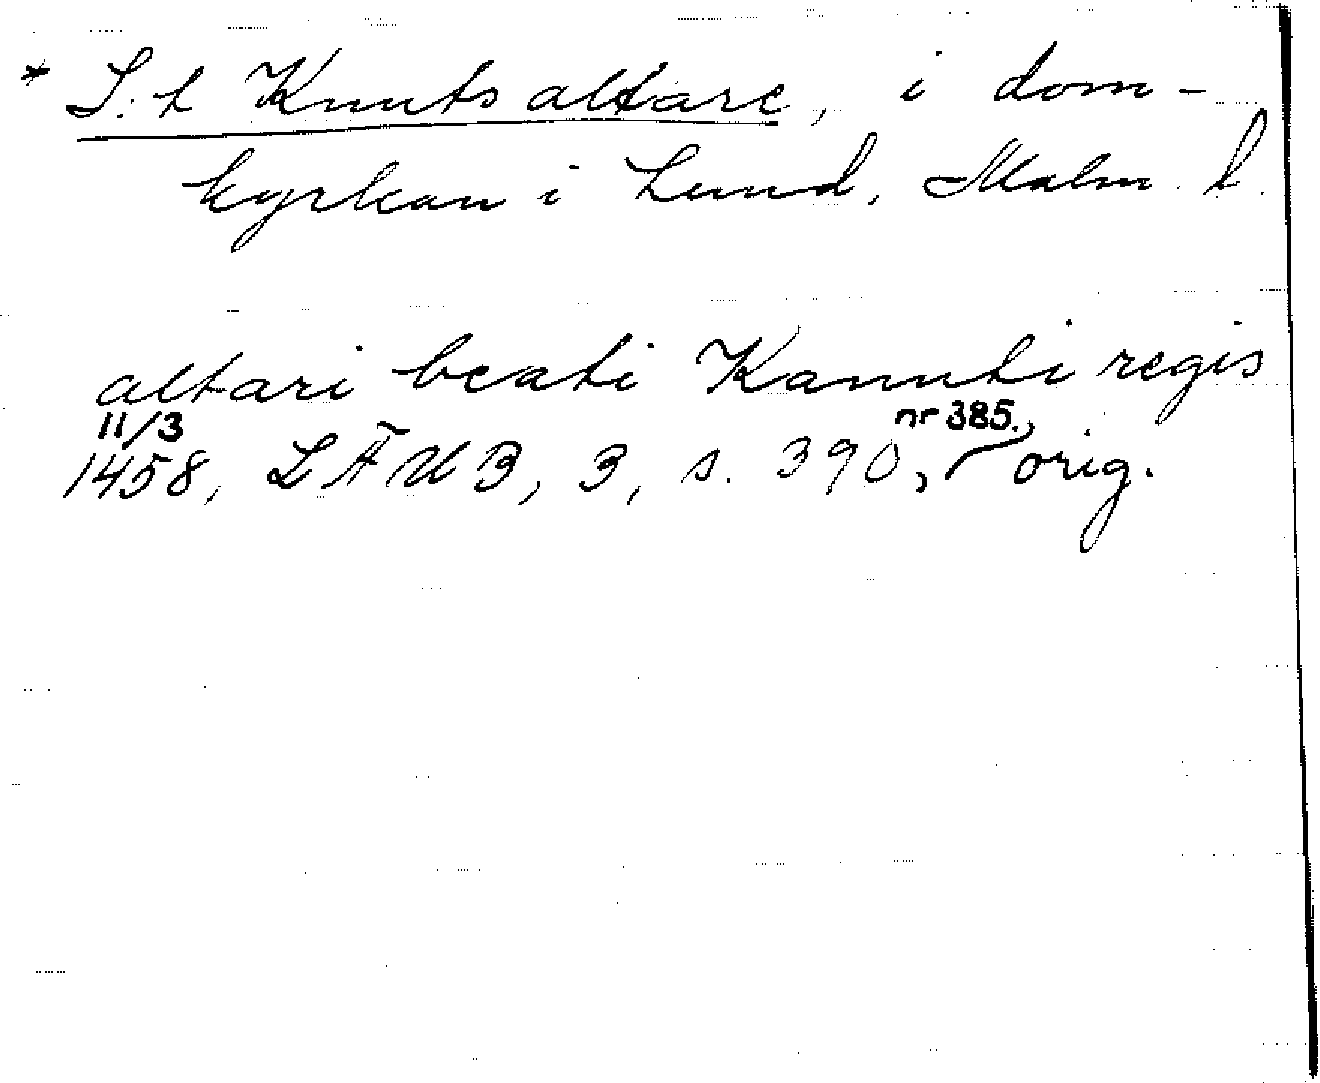 * S:t Knuts altare, i dom-
kyrkan i Lund, Malm. l.
altari beati Kanuti regis
11/3 nr 385.,
1458, LÄUB, 3, s. 390, orig.